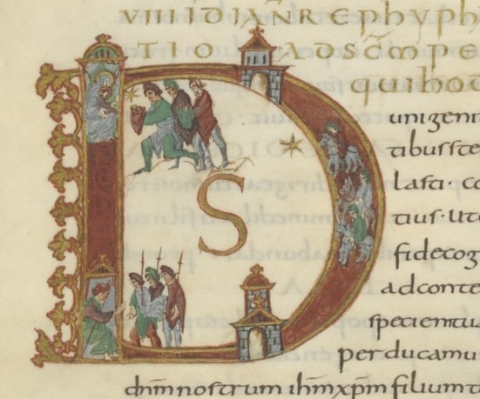 VIII ID IAN̄R EPHYPH
TIO AD SC̄M PE
qui hod
DS
unigeni
tibus ste
lasti· co
tius· ut e
fide cog
ad conte
speciem tu
perducamu
dn̄m nostrum ih̄m xp̄m filium t